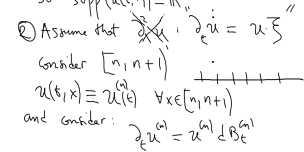 so supp(u(t,·)) = ℝ^n
② Assume that "∂_t u̇ = u·ξ̇"
Consider [n, n+1)
u(t,x) ≡ u^(n)(t) ∀x∈[n, n+1)
and consider: ∂_t u^(n) = u^(n) dB_t^(n)